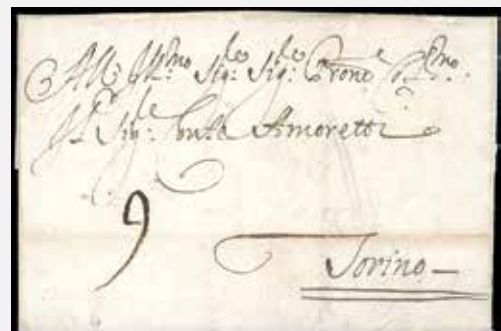 All Ill.mo Sig.re Sig.re Prone Col.mo
Il Sig.re Conte Amoretti
9
Torino